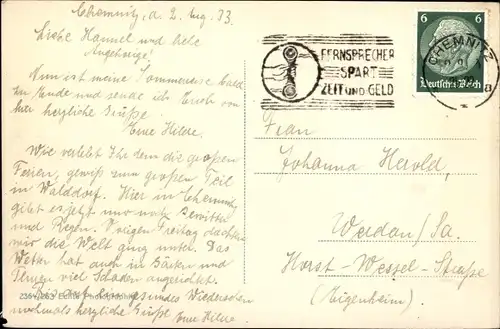 Chemnitz, d. 2. Aug. 33.
Liebe Hannel und liebe
Angehörige!
Nun ist meine Sommerreise bald
zu Ende und sende ich Euch von
hier herzliche Grüße.
Eure Hilde.
Wie verlebt Ihr denn die großen
Ferien, gewiß zum großen Teil
in Walddorf. Hier in Chemnitz
gibt es jetzt nur noch Gewitter
und Regen. Vorigen Freitag dachten
wir die Welt ging unter. Das
Wetter hat auch in Gärten und
Fluren viel Schaden angerichtet.
Auf ein gesundes Wiedersehen
nochmals herzliche Grüße
Eure Hilde
2364/263 Echte Photographie
FERNSPRECHER
SPART
ZEIT UND GELD
CHEMNITZ
6 6
Deutsches Reich
Frau
Johanna Herold,
Werdau/Sa.
Horst-Wessel-Straße
(Eigenheim).